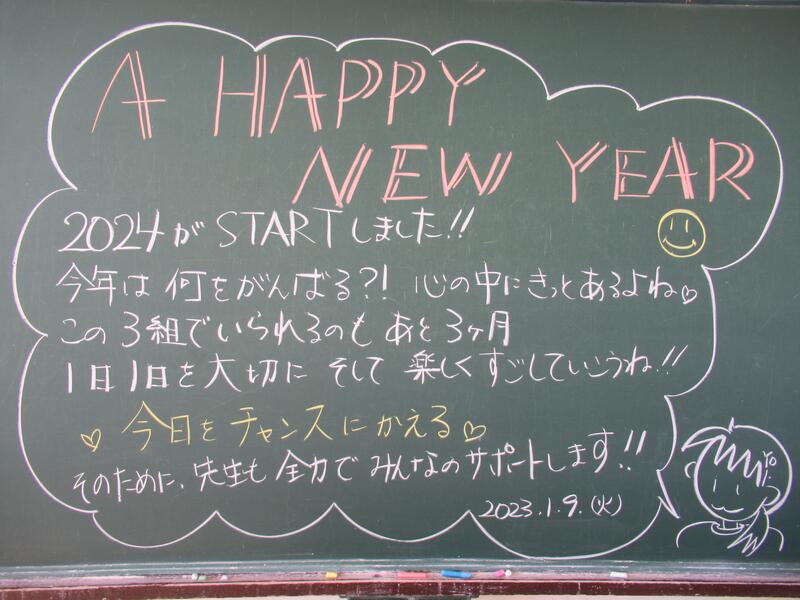 A HAPPY
NEW YEAR
2024が STARTしました!!
今年は 何をがんばる?! 心の中にきっとあるよね♡
この3組でいられるのも あと3ヶ月
1日1日を大切に そして 楽しくすごしていこうね!!
♡ 今日をチャンスにかえる♡
そのために、先生も 全力で みんなのサポートします!!
2023.1.9.(火)